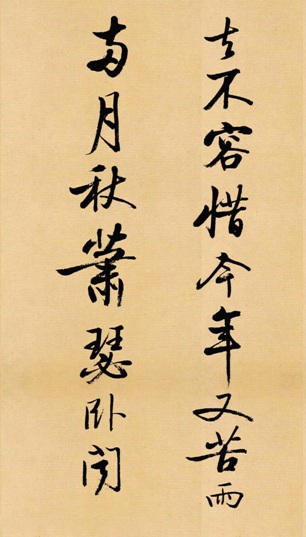 去不容惜今年又苦雨
两月秋蕭瑟卧聞